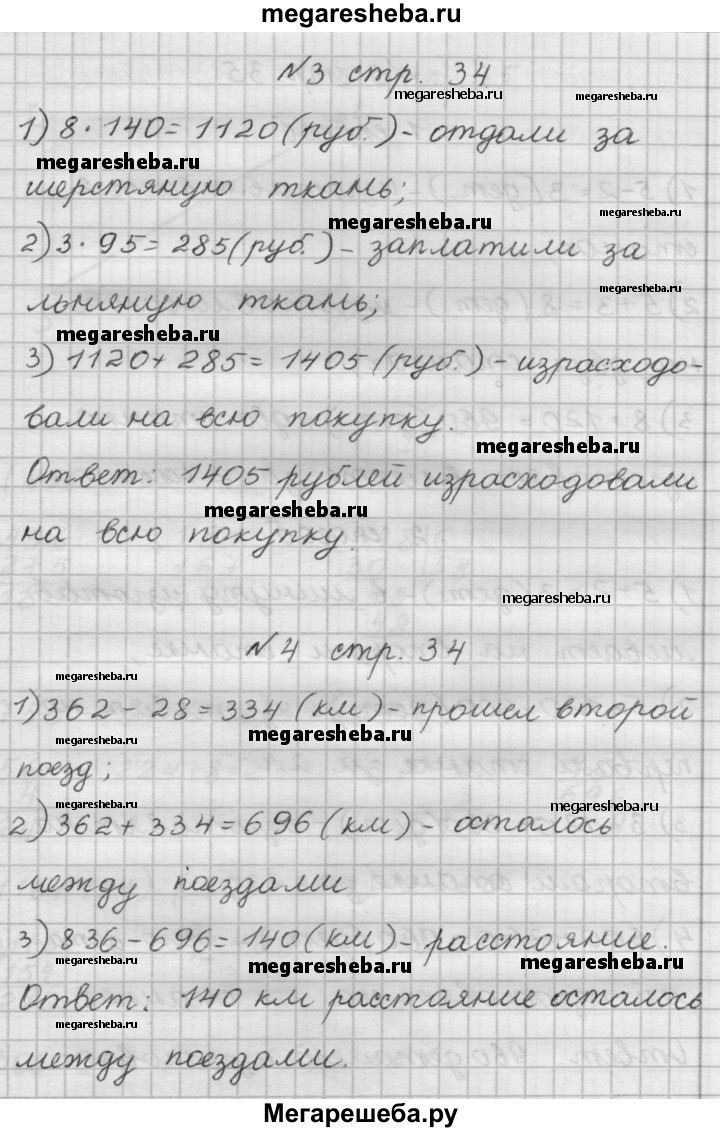 megaresheba.ru
N3 стр. 34
megaresheba.ru
megaresheba.ru
1) 8 · 140 = 1120 (руб.) - отдали за
megaresheba.ru
шерстяную ткань;
megaresheba.ru
megaresheba.ru
2) 3 · 95 = 285 (руб.) - заплатили за
megaresheba.ru
льняную ткань;
megaresheba.ru
3) 1120 + 285 = 1405 (руб.) - израсходо-
вали на всю покупку.
megaresheba.ru
Ответ: 1405 рублей израсходовали
megaresheba.ru
на всю покупку.
megaresheba.ru
N4 стр. 34
megaresheba.ru
1) 362 - 28 = 334 (км) - прошел второй
megaresheba.ru
megaresheba.ru
поезд;
megaresheba.ru
megaresheba.ru
2) 362 + 334 = 696 (км) - осталось
между поездами
3) 836 - 696 = 140 (км) - расстояние.
megaresheba.ru
megaresheba.ru
megaresheba.ru
Ответ: 140 км расстояние осталось
megaresheba.ru
между поездами.
Мегарешеба.ру